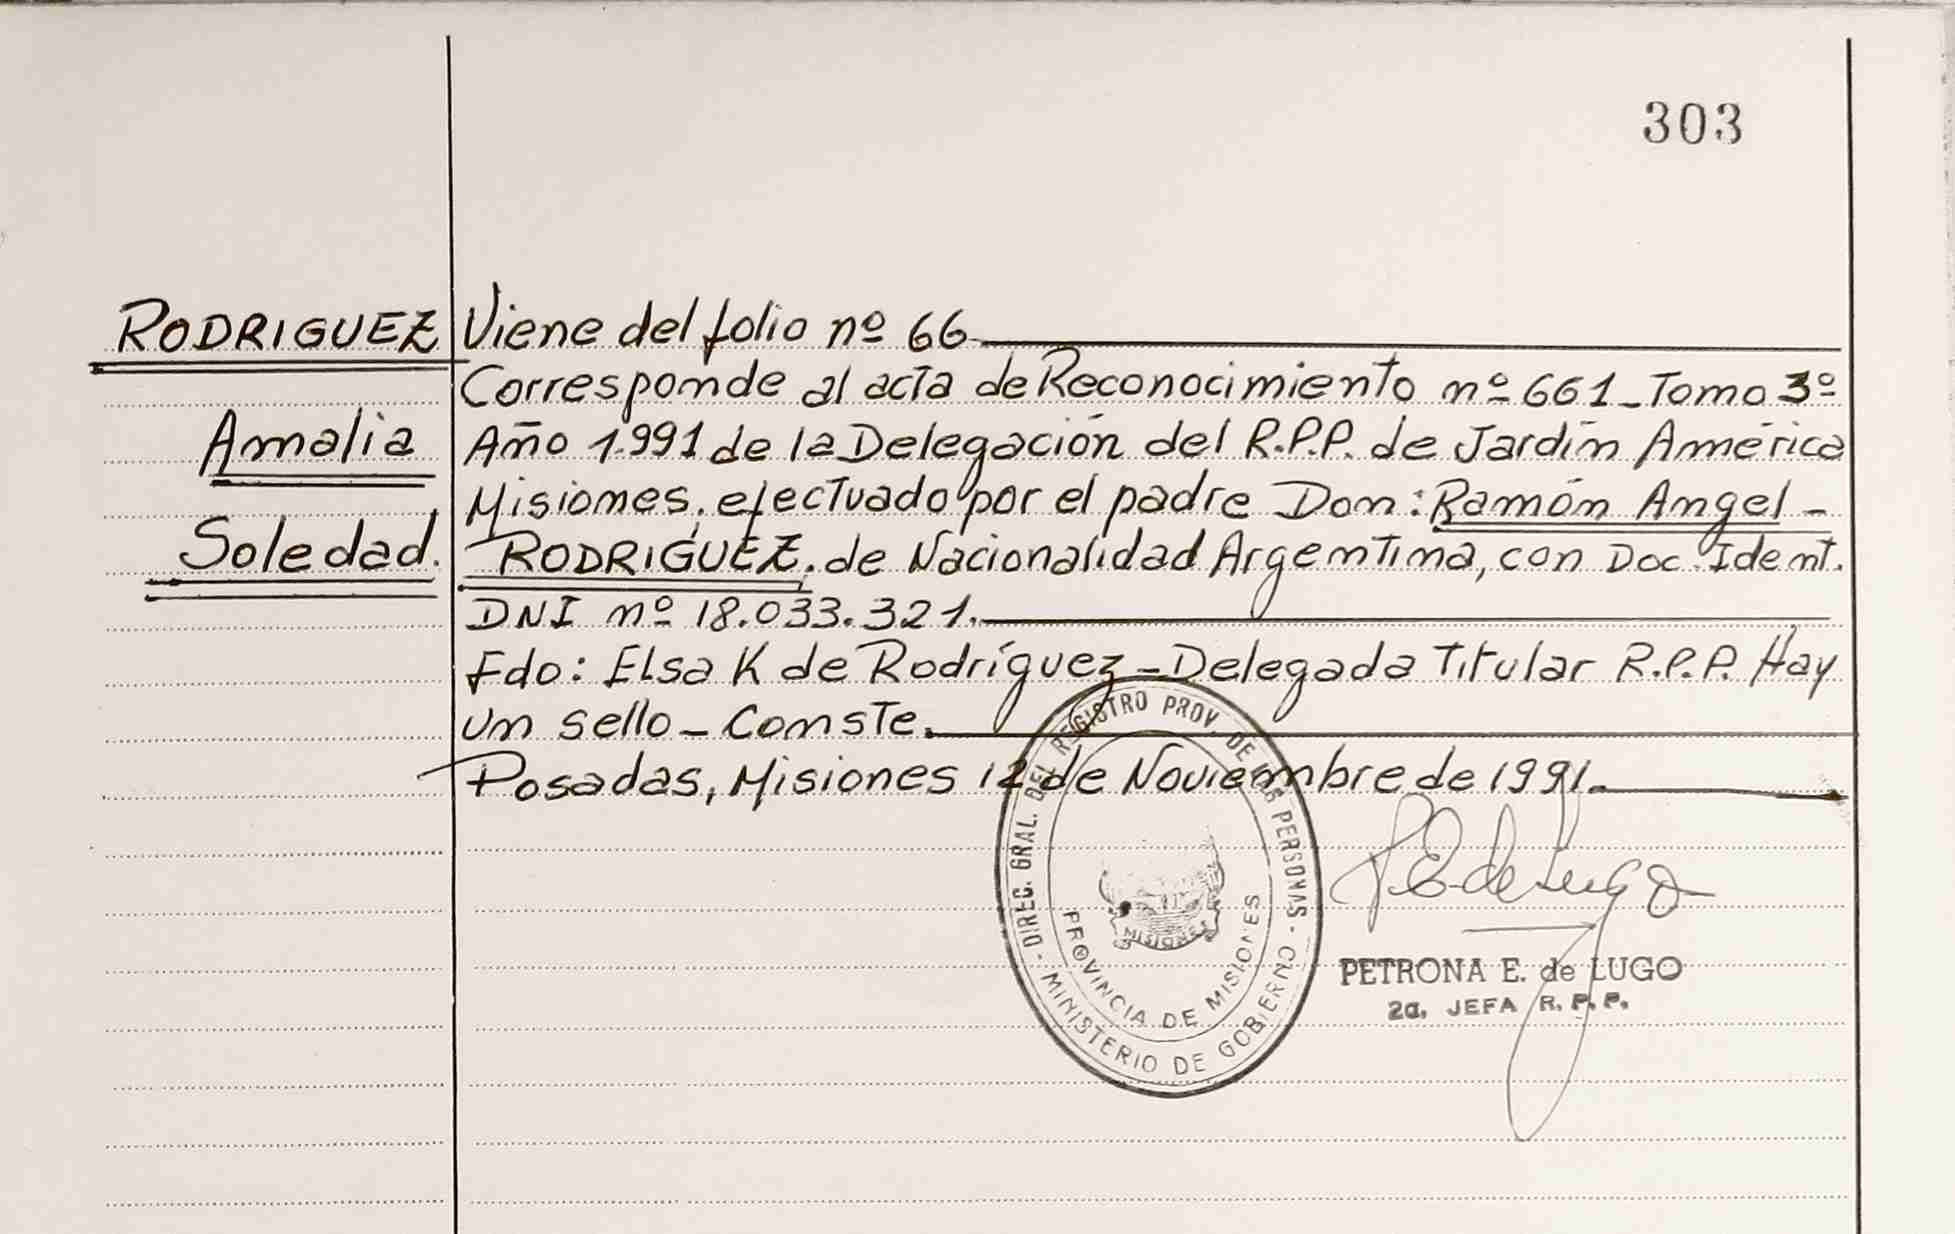 303
RODRIGUEZ
Amalia
Soledad.
Viene del folio nº 66
Corresponde al acta de Reconocimiento nº 661_Tomo 3º
Año 1.991 de la Delegación del R.P.P. de Jardín América
Misiones, efectuado por el padre Don: Ramón Angel -
RODRIGUEZ, de Nacionalidad Argentina, con Doc. Ident.
DNI nº 18.033.321.
Fdo: Elsa K de Rodríguez - Delegada Titular R.P.P. Hay
un sello - Conste.
Posadas, Misiones 12 de Noviembre de 1991.
DIREC. GRAL. DEL REGISTRO PROV. DE LAS PERSONAS -
MINISTERIO DE GOBIERNO -
PROVINCIA DE MISIONES
MISIONES
P E de Lugo
PETRONA E. de LUGO
2a. JEFA R. P. P.